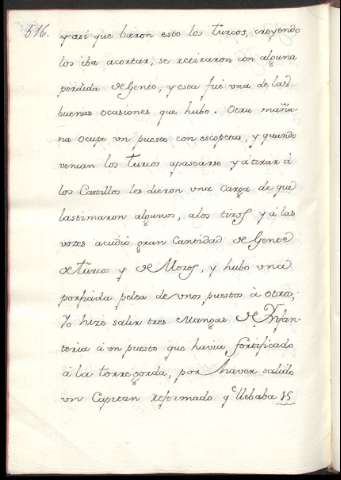 516.
y asi que bieron esto los Turcos, creyendo
los iba acortar, se retiraron con alguna
perdida de Gente, y esta fué una de las
buenas ocasiones que hubo. Otra maña-
na ocupe un puesto con escopetas, y quando
venian los Turcos apasearse y á tirar á
los Castillos les dieron una Carga de que
lastimaron algunos, a los tiros y á las
voces acudio gran Cantidad de Gente
de Turcos y de Moros, y hubo una
porfiada pelea de unos puestos á otros,
Yo hize salir tres Mangas de Ynfan-
teria á un puesto que havia fortificado
á la torre gorda, por haver salido
un Capitan reformado q.e llebaba 15